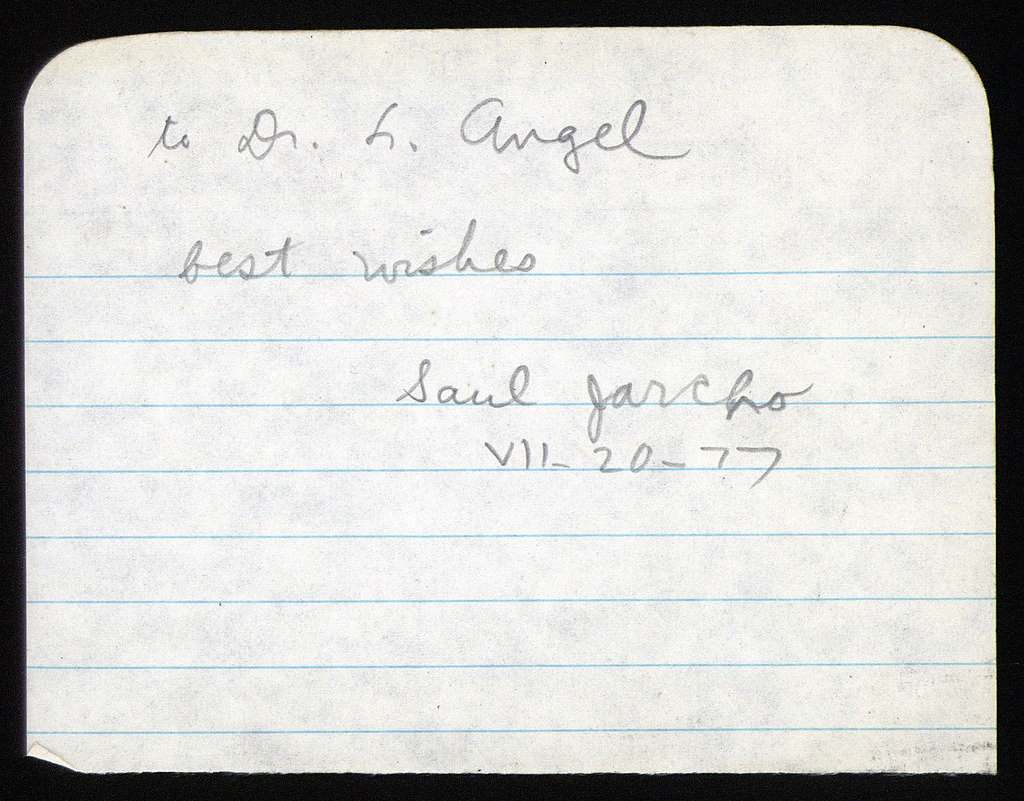 to Dr. L. Angel
best wishes
Saul Jarcho
VII-20-77